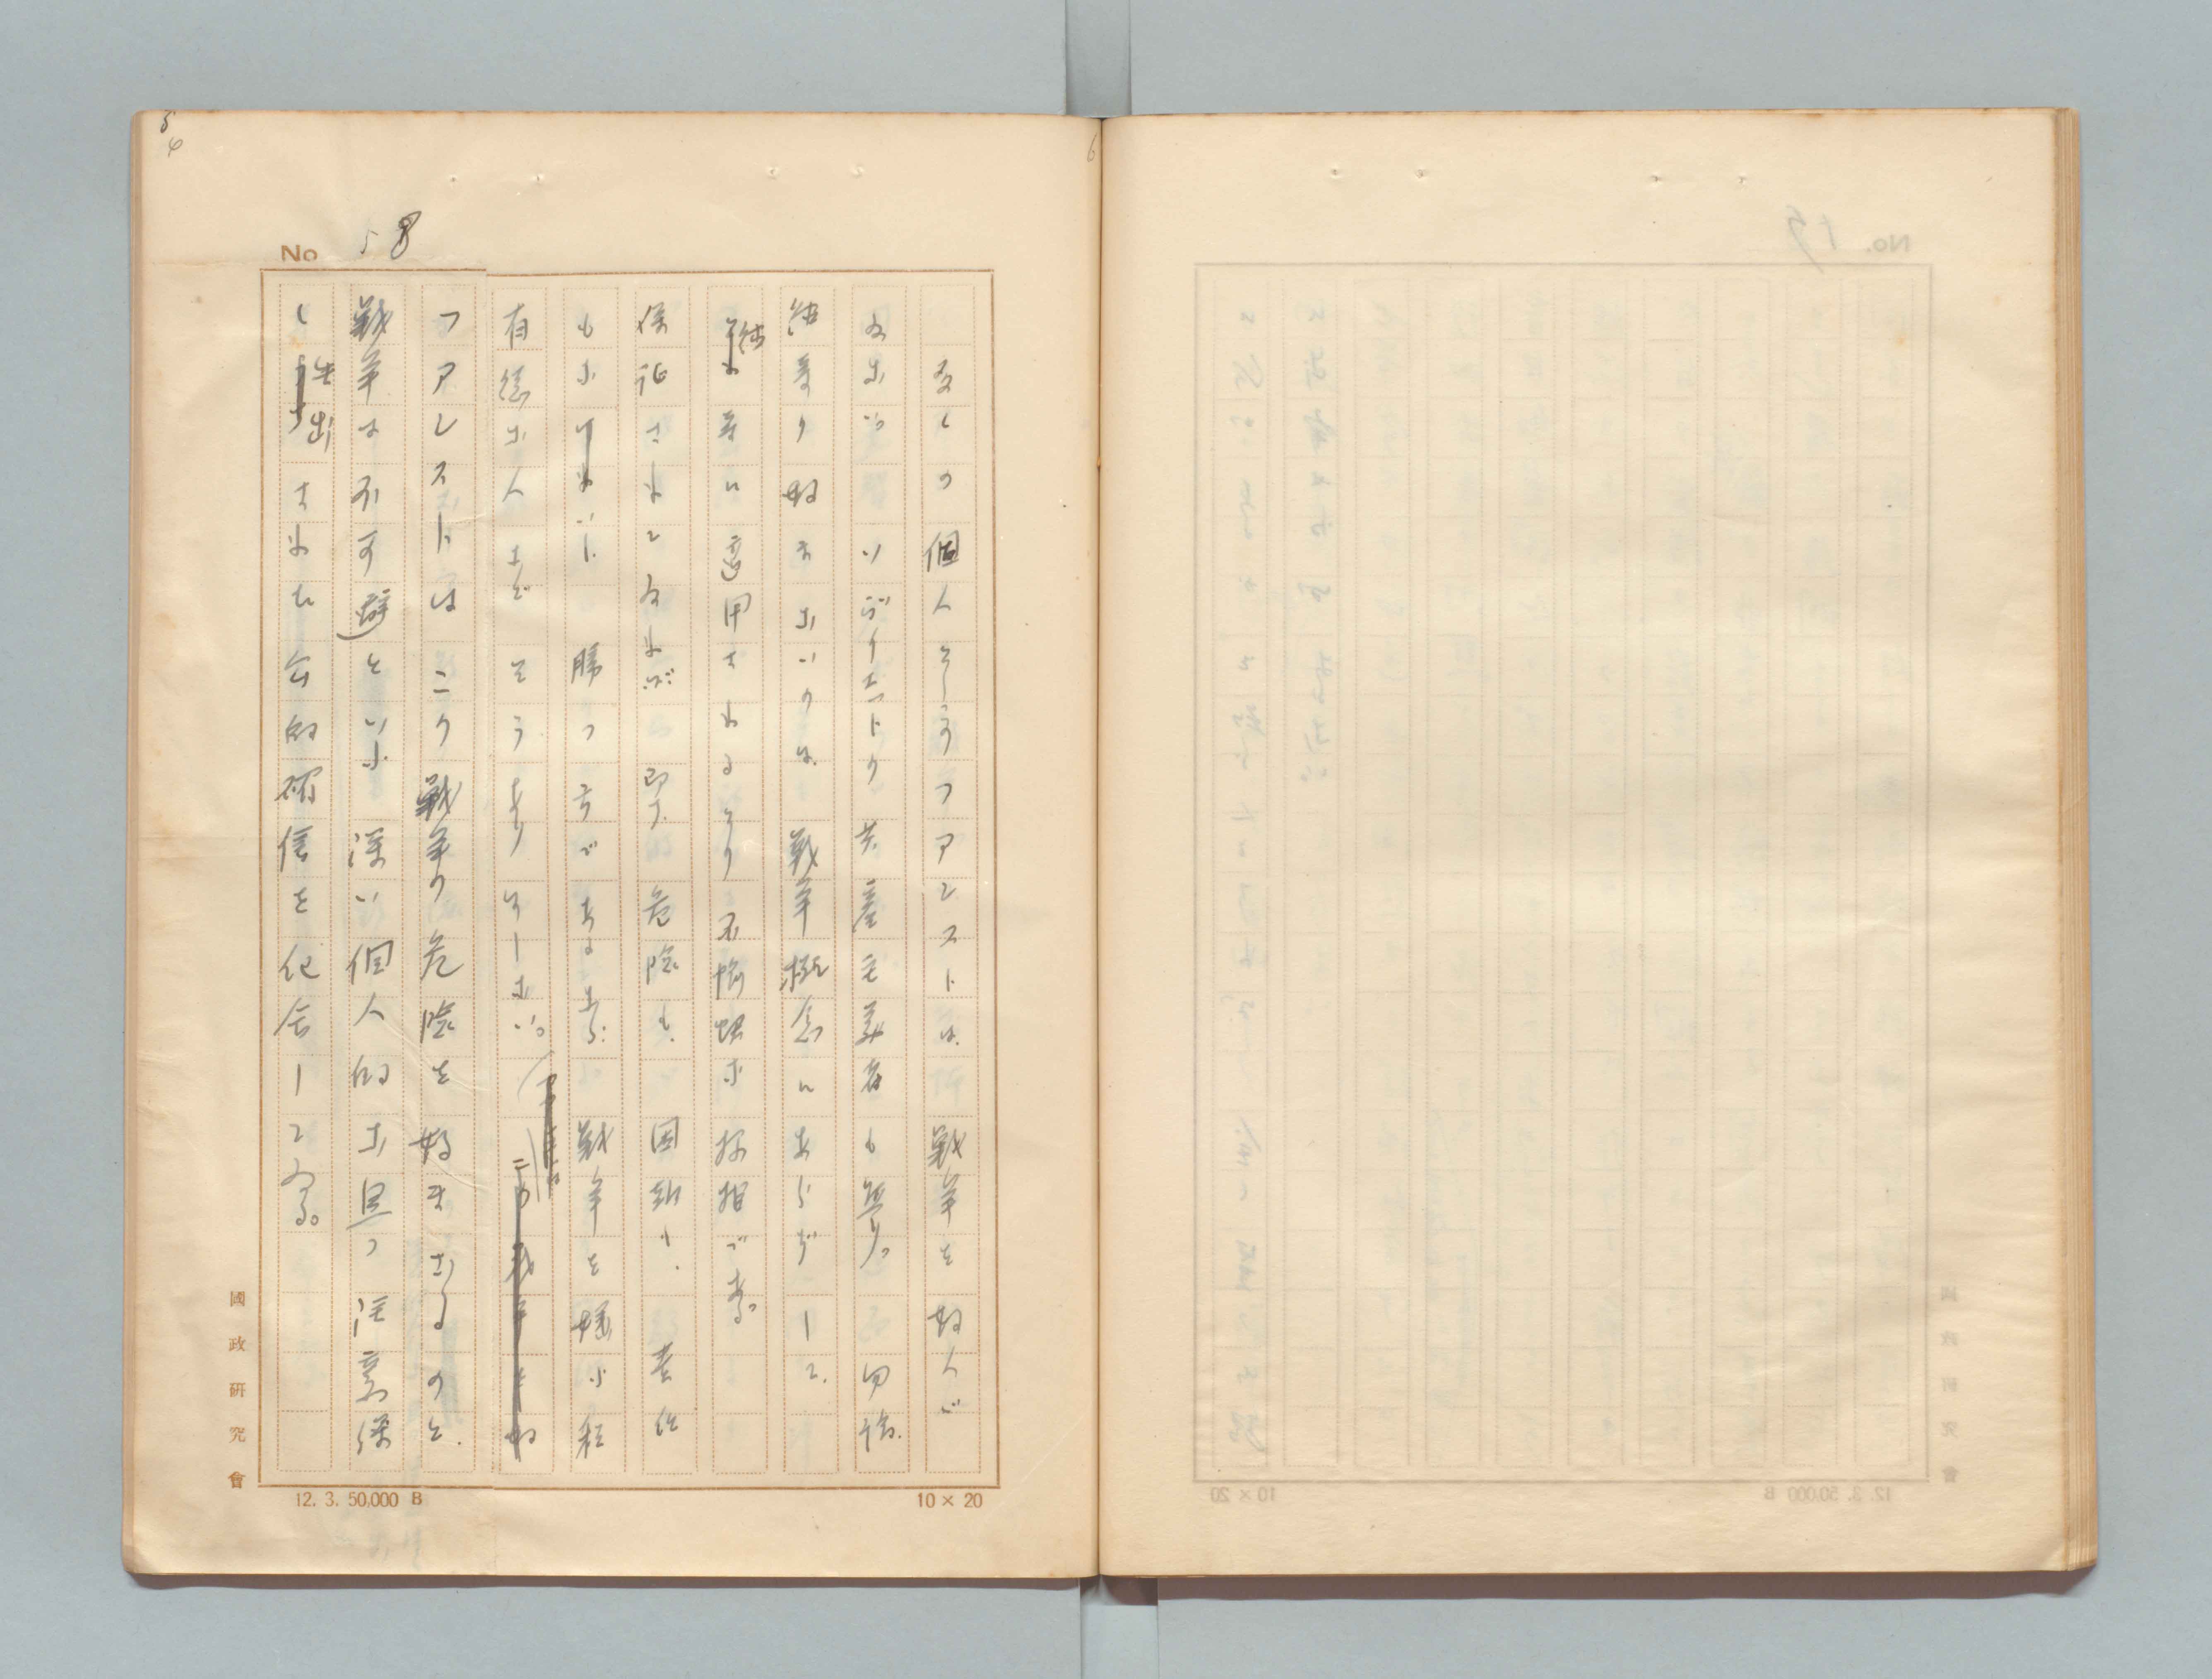 5
4
6
No 58
多くの個人としてのファシストは、戦争を好んで
ゐない。ソヴィエットの共産主義者も無い。勿論、
好まないのは、戦争概念にあらずして、
適用されるその不愉快な である。
保証されてゐれば、即ち、危険も、困難も、責任
もなければ 勝つ方であるならば 戦争を嫌ふ程
有徳な人など そうありはしない。
ファシストは この戦争の危険を好まざるのと、
戦争は不可避といふ 深い個人的な且つ注意深
く 出された公的確信を化合してゐる。
國政研究會
12. 3. 50,000 B
10×20